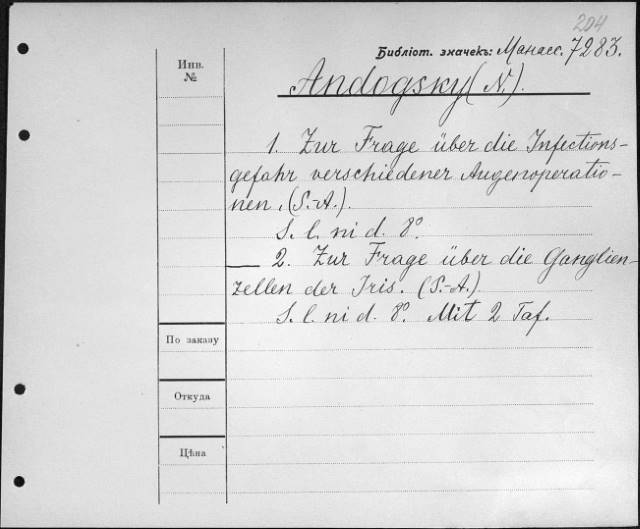 204
Библіот. значекъ: Манасс. 7283.
Инв.
№
Andogsky (N.).
1. Zur Frage über die Infections-
gefahr verschiedener Augenoperatio-
nen. (S.-A.).
S. l. ni d. 8°.
— 2. Zur Frage über die Ganglien-
zellen der Iris. (S.-A.)
S. l. ni d. 8°. Mit 2 Taf.
По заказу
Откуда
Цѣна